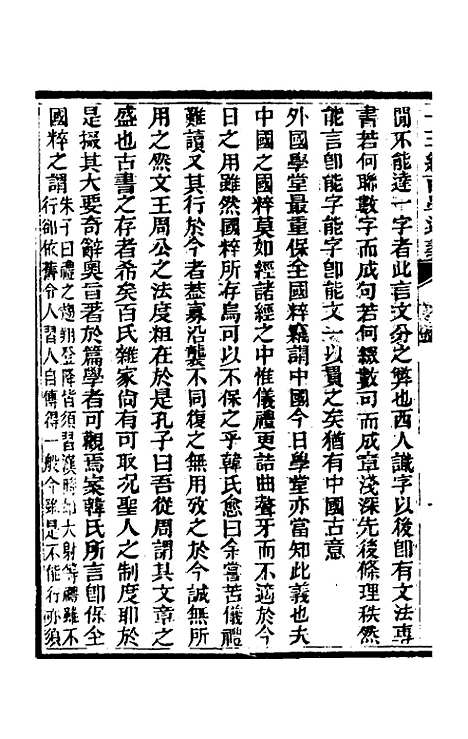 閒不能達一字者此言文分之弊也西人識字以後卽有文法專
書若何聯數字而成句若何綴數句而成章淺深先後條理秩然
能言卽能字能字卽能文一以貫之矣猶有中國古意
外國學堂最重保全國粹竊謂中國今日學堂亦當知此義也夫
中國之國粹莫如經諸經之中惟儀禮更詰曲聱牙而不適於今
日之用雖然國粹所存烏可以不保之乎韓氏愈曰余嘗苦儀禮
難讀又其行於今者蓋寡沿襲不同復之無用攷之於今誠無所
用之然文王周公之法度粗在於是孔子曰吾從周謂其文章之
盛也古書之存者希矣百氏雜家尙有可取况聖人之制度耶於
是掇其大要奇辭奧旨著於篇學者可觀焉案韓氏所言卽保全
國粹之謂朱子曰禮之趨翔登降皆須習漢時如大射等禮雖不
行卻依舊令人習人自傳得一般今雖是不能行亦須